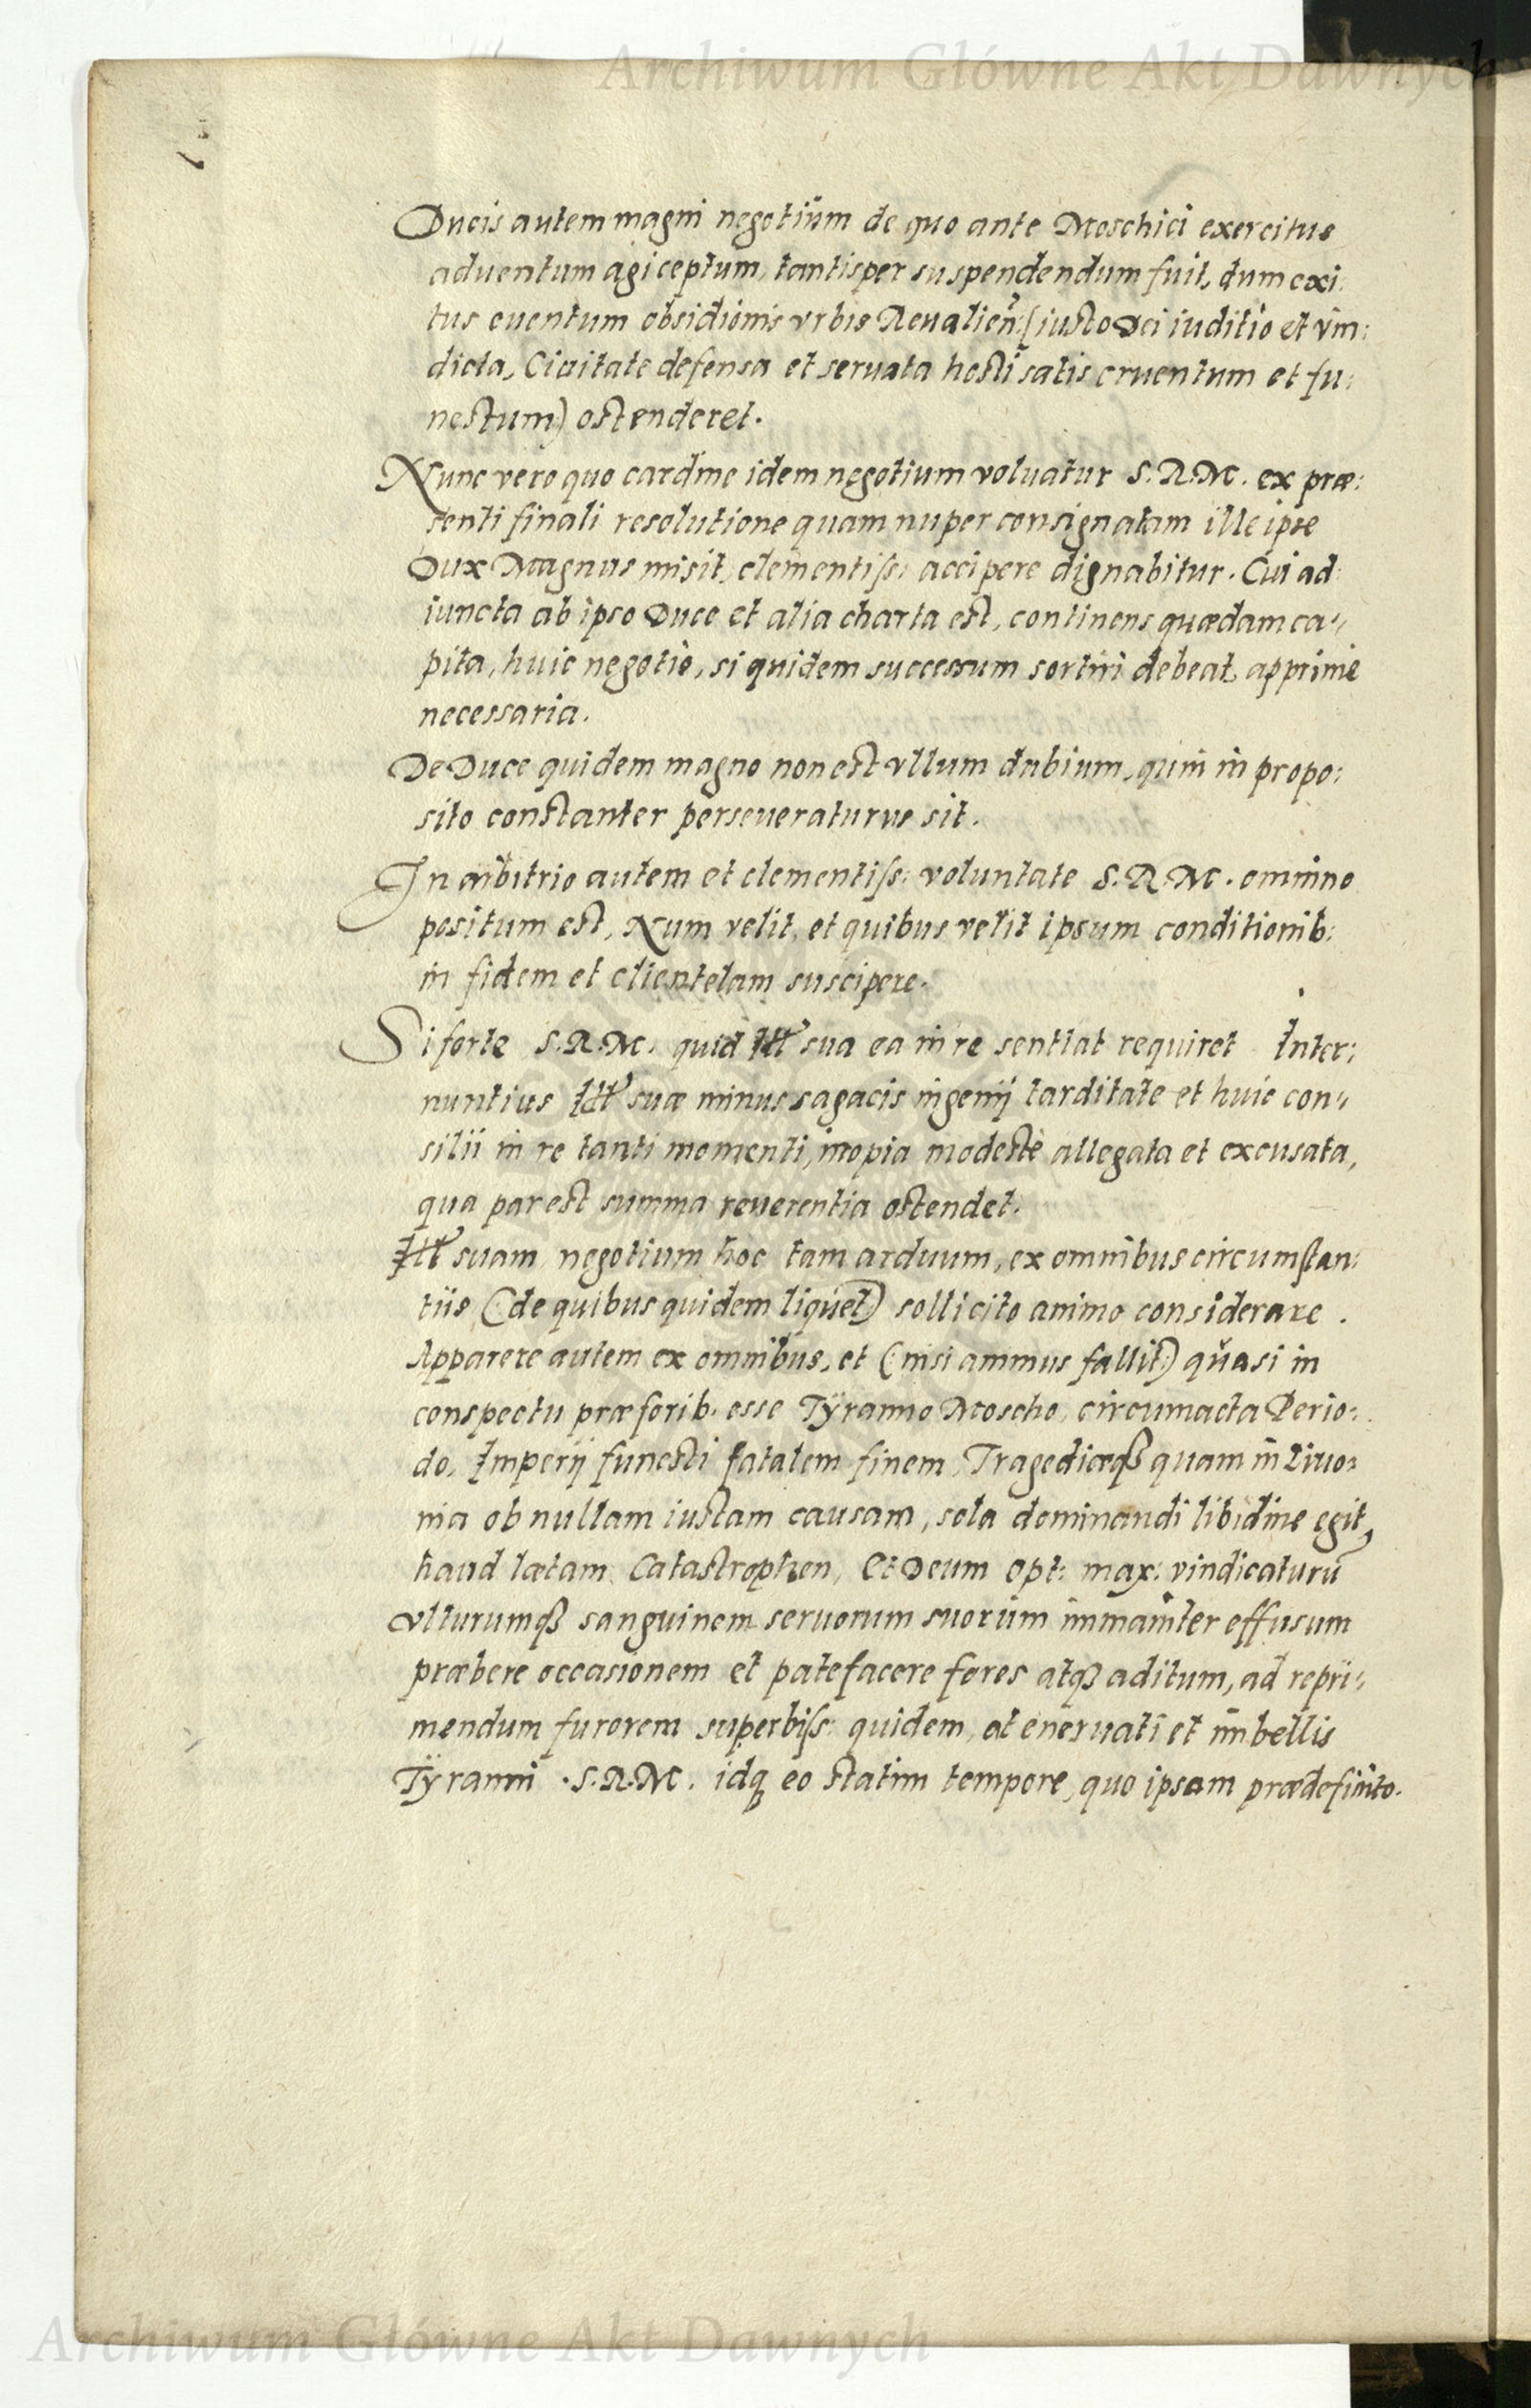 Archiwum Główne Akt Dawnych
Ducis autem magni negotium de quo ante Moschici exercitus
aduentum agi ceptum, tantisper suspendendum fuit, dum exi:
tus euentum obsidionis vrbis Reualien: (iusto Dei iuditio et vin:
dicta, Ciuitate defensa et seruata hosti satis cruentum et fu:
nestum) ostenderet.
Nunc vero quo cardine idem negotium voluatur S.R.M. ex præ:
senti finali resolutione quam nuper consignatam ille ipse
Dux Magnus misit, clementiss: accipere dignabitur. Cui ad:
iuncta ab ipso Duce et alia charta est, continens quædam ca"
pita, huic negotio, si quidem successum sortiri debeat, apprime
necessaria.
De Duce quidem magno non est vllum dubium, quin in propo:
sito constanter perseueraturus sit.
In arbitrio autem et clementiss: voluntate S.R.M. omnino
positum est, Num velit, et quibus velit ipsum conditionib:
in fidem et clientelam suscipere.
Si forte S.R.M. quid Ill sua ea in re sentiat requiret Inter:
nuntius Ill suæ minus sagacis ingenij tarditate et huic con"
silii in re tanti momenti, inopia modestè allegata et excusata,
qua par est summa reuerentia ostendet.
Ill suam negotium hoc tam arduum, ex omnibus circumstan:
tiis (de quibus quidem liquet) sollicito animo considerare.
Apparere autem ex omnibus, et (nisi animus fallit) quasi in
conspectu præ forib. esse Tÿranno Moscho, circumacta Perio:
do, Imperij funesti fatalem finem, Tragediæq quam in Liuo:
nia ob nullam iustam causam, sola dominandi libidine egit,
haud lætam Catastrophen, Et Deum opt: max: vindicaturū
vlturumq sanguinem seruorum suorum immaniter effusum
præbere occasionem et patefacere fores atq aditum, ad repri",
mendum furorem superbiss: quidem, at eneruati et imbellis
Tÿranni S.R.M. idq eo statim tempore, quo ipsam prædefinito.
Archiwum Główne Akt Dawnych